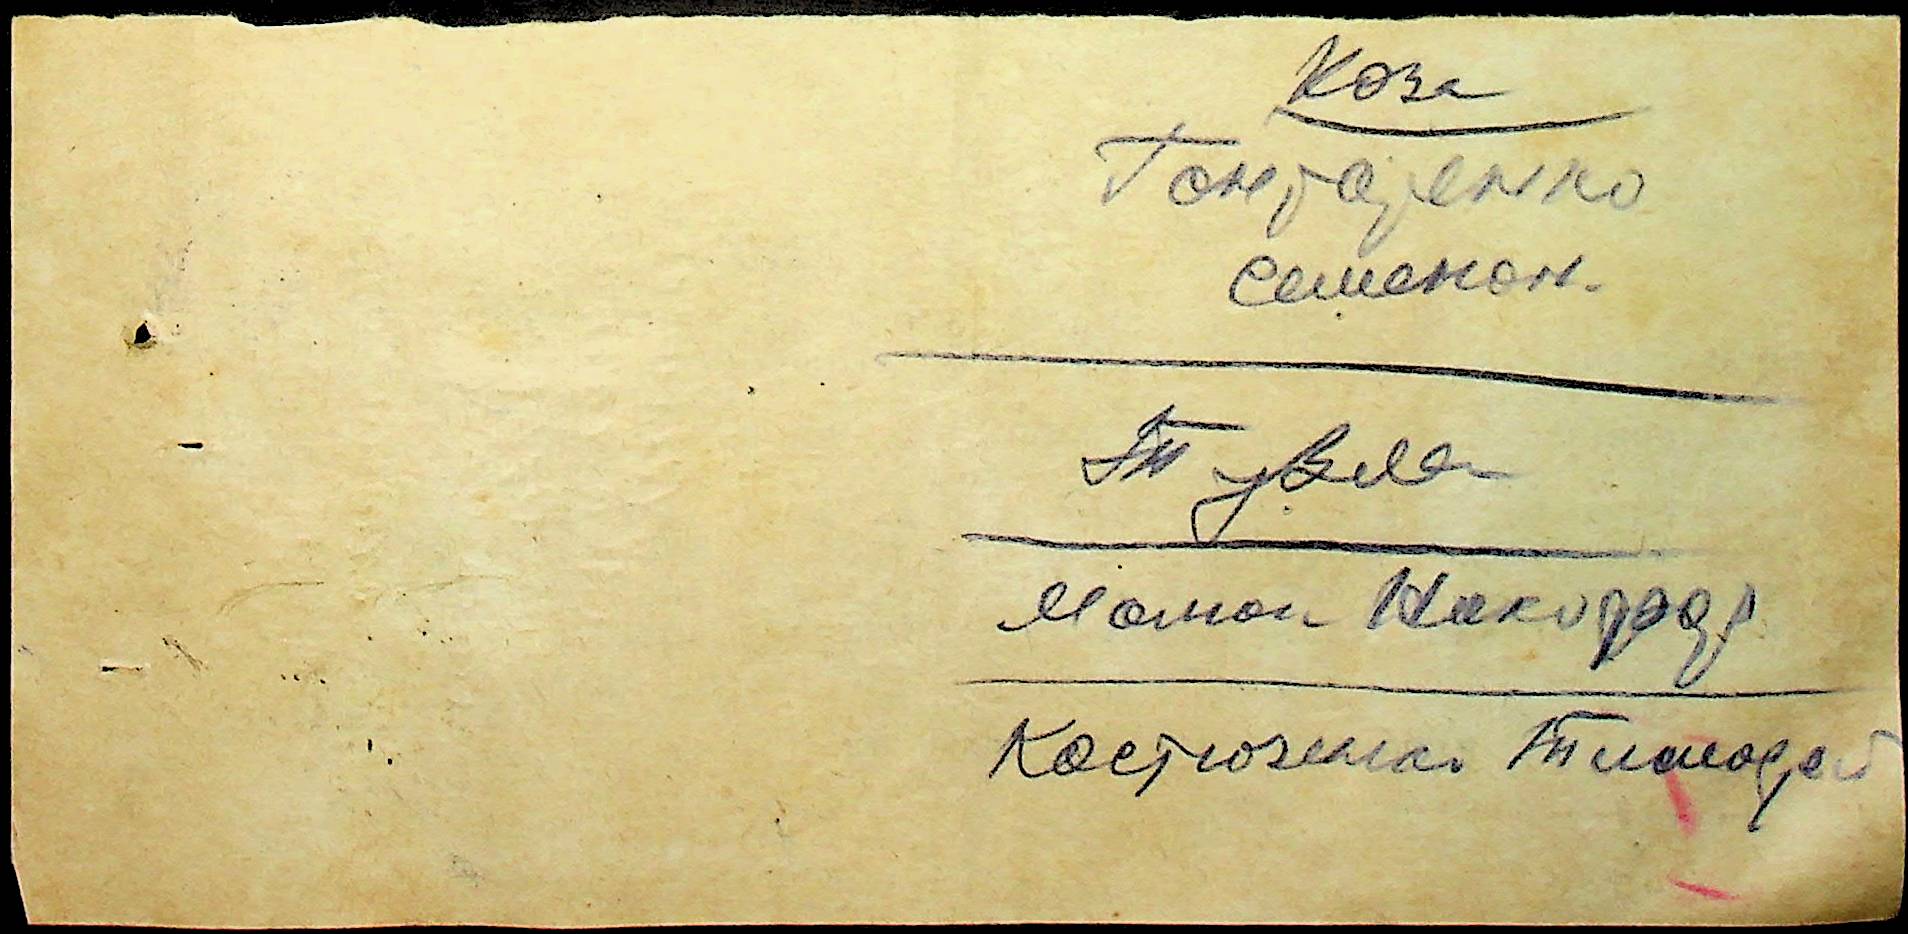 Коза
Гончаренко
Семенон.
Тувла
Мамон Никифор
Костюзенко Тимофей